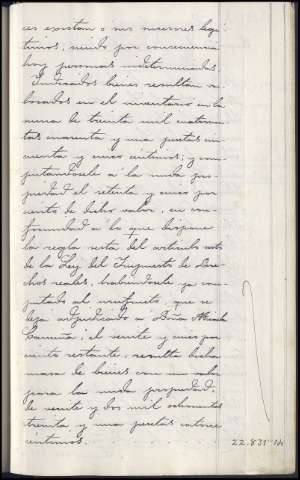 ces existan o sus sucesores legí-
timos, siendo por consecuencia
hoy personas indeterminadas.
Indicados bienes resultan va-
lorados en el inventario en la
suma de treinta mil cuatrocien-
tas cuarenta y una pesetas cin-
cuenta y cinco céntimos; y com-
putándosele á la nuda pro-
piedad el setenta y cinco por
ciento de dicho valor, en con-
formidad á lo que dispone
la regla sexta del artículo
de la Ley del Impuesto de Dere-
chos reales, habiéndosele ya com-
putado al usufructo, que se
deja adjudicado á Doña
el veinte y cinco por
ciento restante, resulta dicha
masa de bienes con un valor
para la nuda propiedad:
de veinte y dos mil ochocientas
treinta y una pesetas catorce
céntimos.
22.831'14